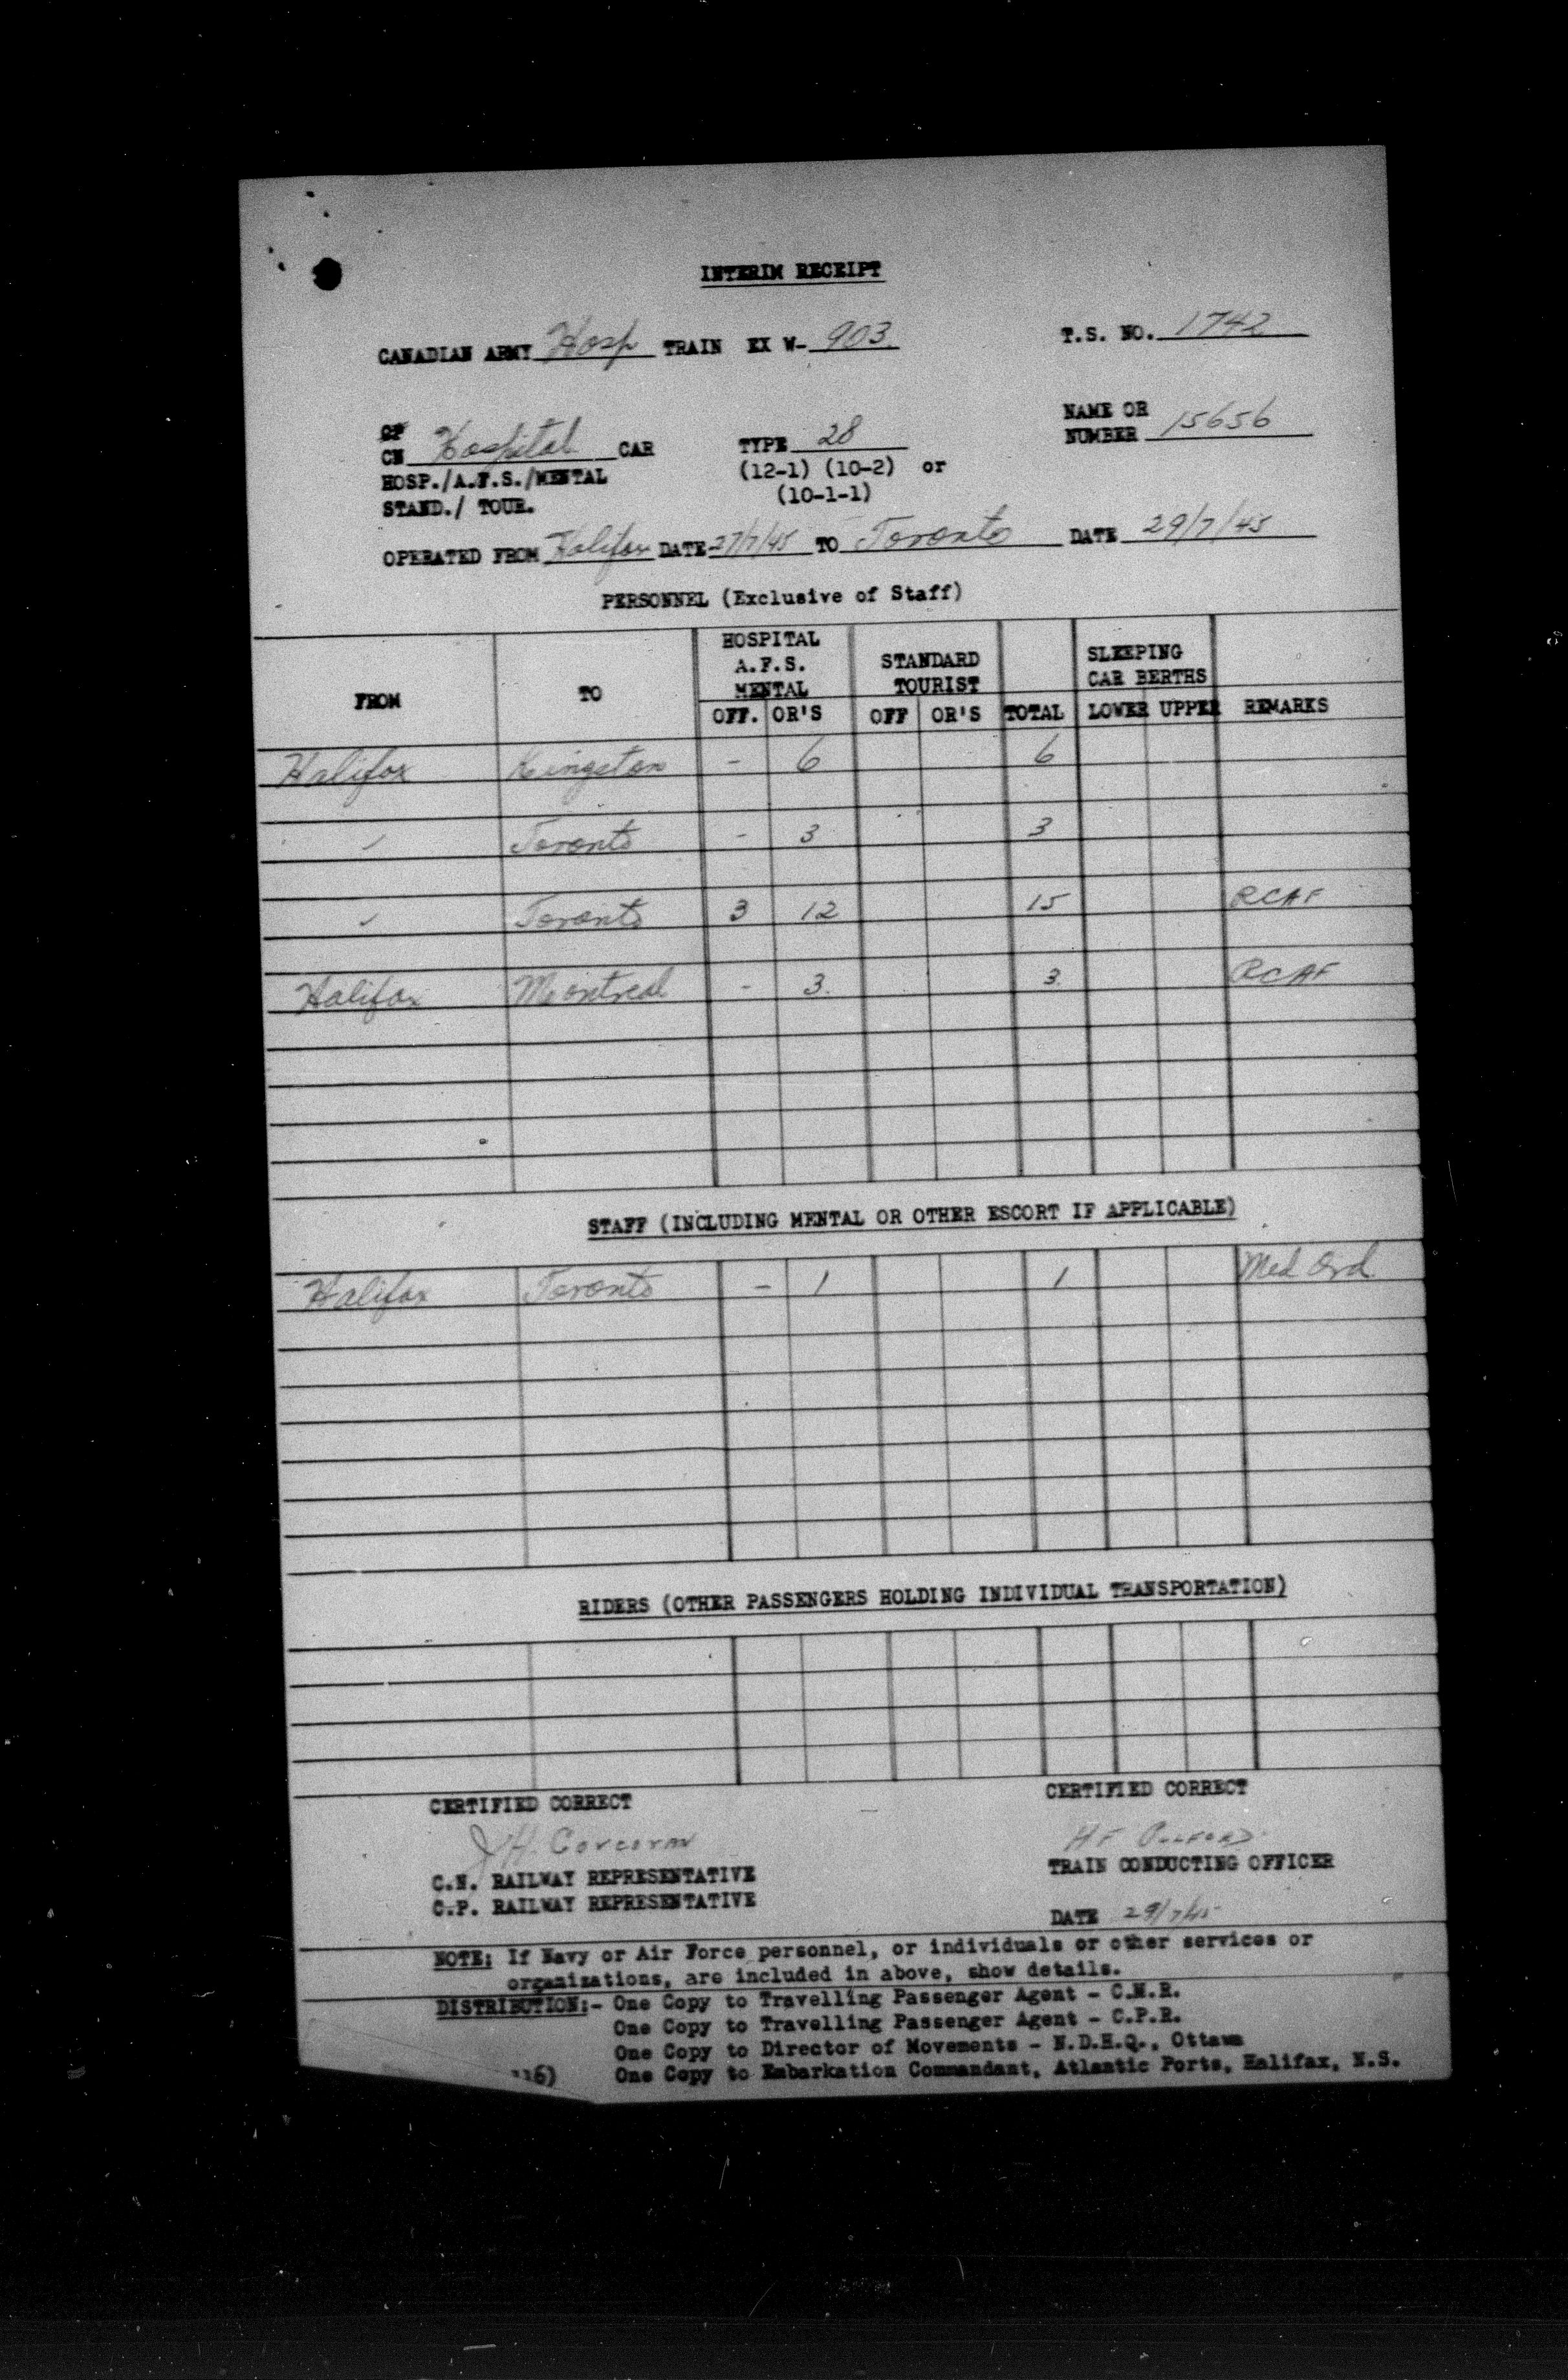 INTERIM RECEIPT
CANADIAN ARMY Hosp TRAIN EX W- 903. T.S. NO. 1742
CP
CN Hospital CAR TYPE 28 NAME OR NUMBER 15656
HOSP./A.F.S./MENTAL (12-1) (10-2) or
STAND./ TOUR. (10-1-1)
OPERATED FROM Halifax DATE 27/7/45 TO Toronto DATE 29/7/45
PERSONNEL (Exclusive of Staff)
FROM TO HOSPITAL A.F.S. MENTAL STANDARD TOURIST SLEEPING CAR BERTHS
OFF. OR'S OFF OR'S TOTAL LOWER UPPER REMARKS
Halifax Kingston - 6 6
" Toronto - 3 3
" Toronto 3 12 15 RCAF
Halifax Montreal - 3. 3. RCAF
STAFF (INCLUDING MENTAL OR OTHER ESCORT IF APPLICABLE)
Halifax Toronto - 1 1 Med Ord.
RIDERS (OTHER PASSENGERS HOLDING INDIVIDUAL TRANSPORTATION)
CERTIFIED CORRECT CERTIFIED CORRECT
JH. Corcoran HF
C.N. RAILWAY REPRESENTATIVE TRAIN CONDUCTING OFFICER
C.P. RAILWAY REPRESENTATIVE
DATE 29/7/45
NOTE: If Navy or Air Force personnel, or individuals or other services or
organizations, are included in above, show details.
DISTRIBUTION:- One Copy to Travelling Passenger Agent - C.N.R.
One Copy to Travelling Passenger Agent - C.P.R.
One Copy to Director of Movements - N.D.H.Q., Ottawa
One Copy to Embarkation Commandant, Atlantic Ports, Halifax, N.S.